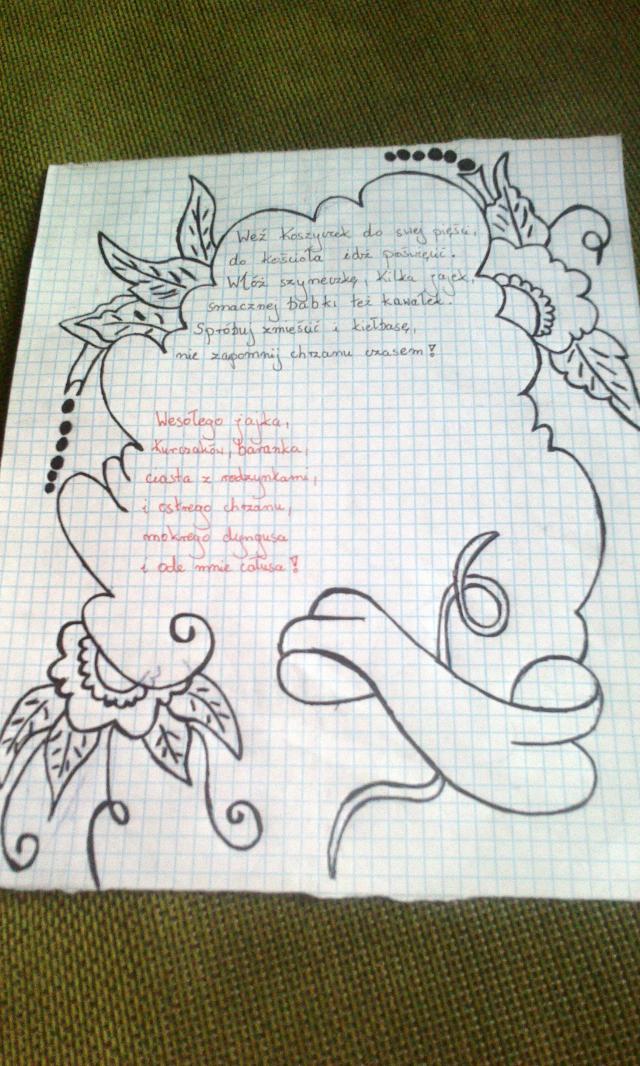 Weź koszyczek do swej pięści,
do kościoła idź poświęcić.
Włóż szyneczkę, kilka jajek,
smacznej babki też kawałek.
Spróbuj zmieścić i kiełbasę,
nie zapomnij chrzanu czasem!
Wesołego jajka,
kurczaków, baranka,
ciasta z rodzynkami,
i ostrego chrzanu,
mokrego dyngusa
i ode mnie całusa!